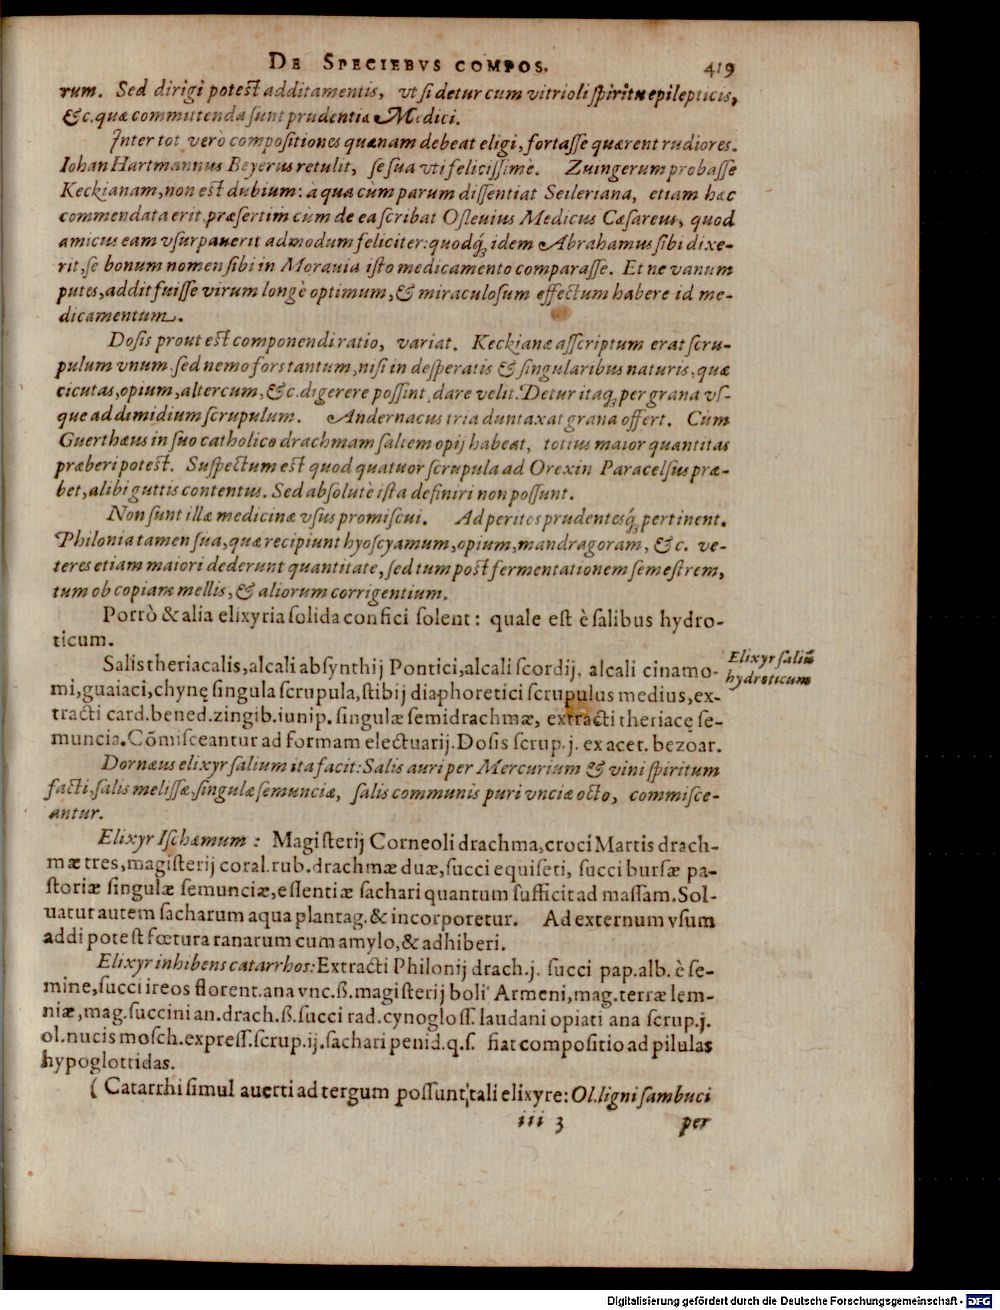 DE SPECIEBVS COMPOS. 419
rum. Sed dirigi potest additamentis, vt si detur cum vitrioli spiritu epilepticis,
&c. quæ commuttenda sunt prudentia Medici.
Inter tot verò compositiones quænam debeat eligi, fortasse quærent rudiores.
Iohan Hartmannus Beyerus retulit, se sua vti felicissimè. Zuingerum probasse
Keckianam, non est dubium: à qua cùm parum dissentiat Seileriana, etiam hæc
commendata erit, præsertim cùm de ea scribat Osleuius Medicus Cæsareus, quod
amicus eam vsurpauerit admodum feliciter: quodq́ idem Abrahamus sibi dixe-
rit, se bonum nomen sibi in Morauia isto medicamento comparasse. Et ne vanum
putes, addit fuisse virum longè optimum, & miraculosum effectum habere id me-
dicamentum.
Dosis prout est componendi ratio, variat. Keckianæ asscriptum erat scru-
pulum vnum, sed nemo fors tantum, nisi in desperatis & singularibus naturis, quæ
cicutas, opium, altercum, &c. digerere possint, dare velit. Detur itaq; per grana vs-
que ad dimidium scrupulum. Andernacus tria duntaxat grana offert. Cùm
Guerthæus in suo catholico drachmam saltem opij habeat, totius maior quantitas
præberi potest. Suspectum est quod quatuor scrupula ad Orexin Paracelsius præ-
bet, alibi guttis contentus. Sed absolutè ista definiri non possunt.
Non sunt illæ medicinæ vsus promiscui. Ad peritos prudentesq́ pertinent.
Philonia tamen sua, quæ recipiunt hyoscyamum, opium, mandragoram, &c. ve-
teres etiam maiori dederunt quantitate, sed tum post fermentationem semestrem,
tum ob copiam mellis, & aliorum corrigentium.
Porrò & alia elixyria solida confici solent: quale est è salibus hydro-
ticum.
Elixyr saliū
hydroticum
Salis theriacalis, alcali absynthij Pontici, alcali scordij, alcali cinamo-
mi, guaiaci, chynę singula scrupula, stibij diaphoretici scrupulus medius, ex-
tracti card. bened. zingib. iunip. singulæ semidrachmæ, extracti theriacę se-
muncia. Cōmisceantur ad formam electuarij. Dosis scrup. j. ex acet. bezoar.
Dornæus elixyr salium ita facit: Salis auri per Mercurium & vini spiritum
facti, salis melissæ, singulæ semunciæ, salis communis puri vnciæ octo, commisce-
antur.
Elixyr Ischæmum: Magisterij Corneoli drachma, croci Martis drach-
mæ tres, magisterij coral. rub. drachmæ duæ, succi equiseti, succi bursæ pa-
storiæ singulæ semunciæ, essentiæ sachari quantum sufficit ad massam. Sol-
uatur autem sacharum aqua plantag. & incorporetur. Ad externum vsum
addi potest fœtura ranarum cum amylo, & adhiberi.
Elixyr inhibens catarrhos: Extracti Philonij drach. j. succi pap. alb. è se-
mine, succi ireos florent. ana vnc. ß. magisterij boli Armeni, mag. terræ lem-
niæ, mag. succini an. drach. ß. succi rad. cynogloss. laudani opiati ana scrup. j.
ol. nucis mosch. express. scrup. ij. sachari penid. q. s. fiat compositio ad pilulas
hypoglottidas.
( Catarrhi simul auerti ad tergum possunt tali elixyre: Ol. ligni sambuci
iii 3 per
Digitalisierung gefördert durch die Deutsche Forschungsgemeinschaft - DFG